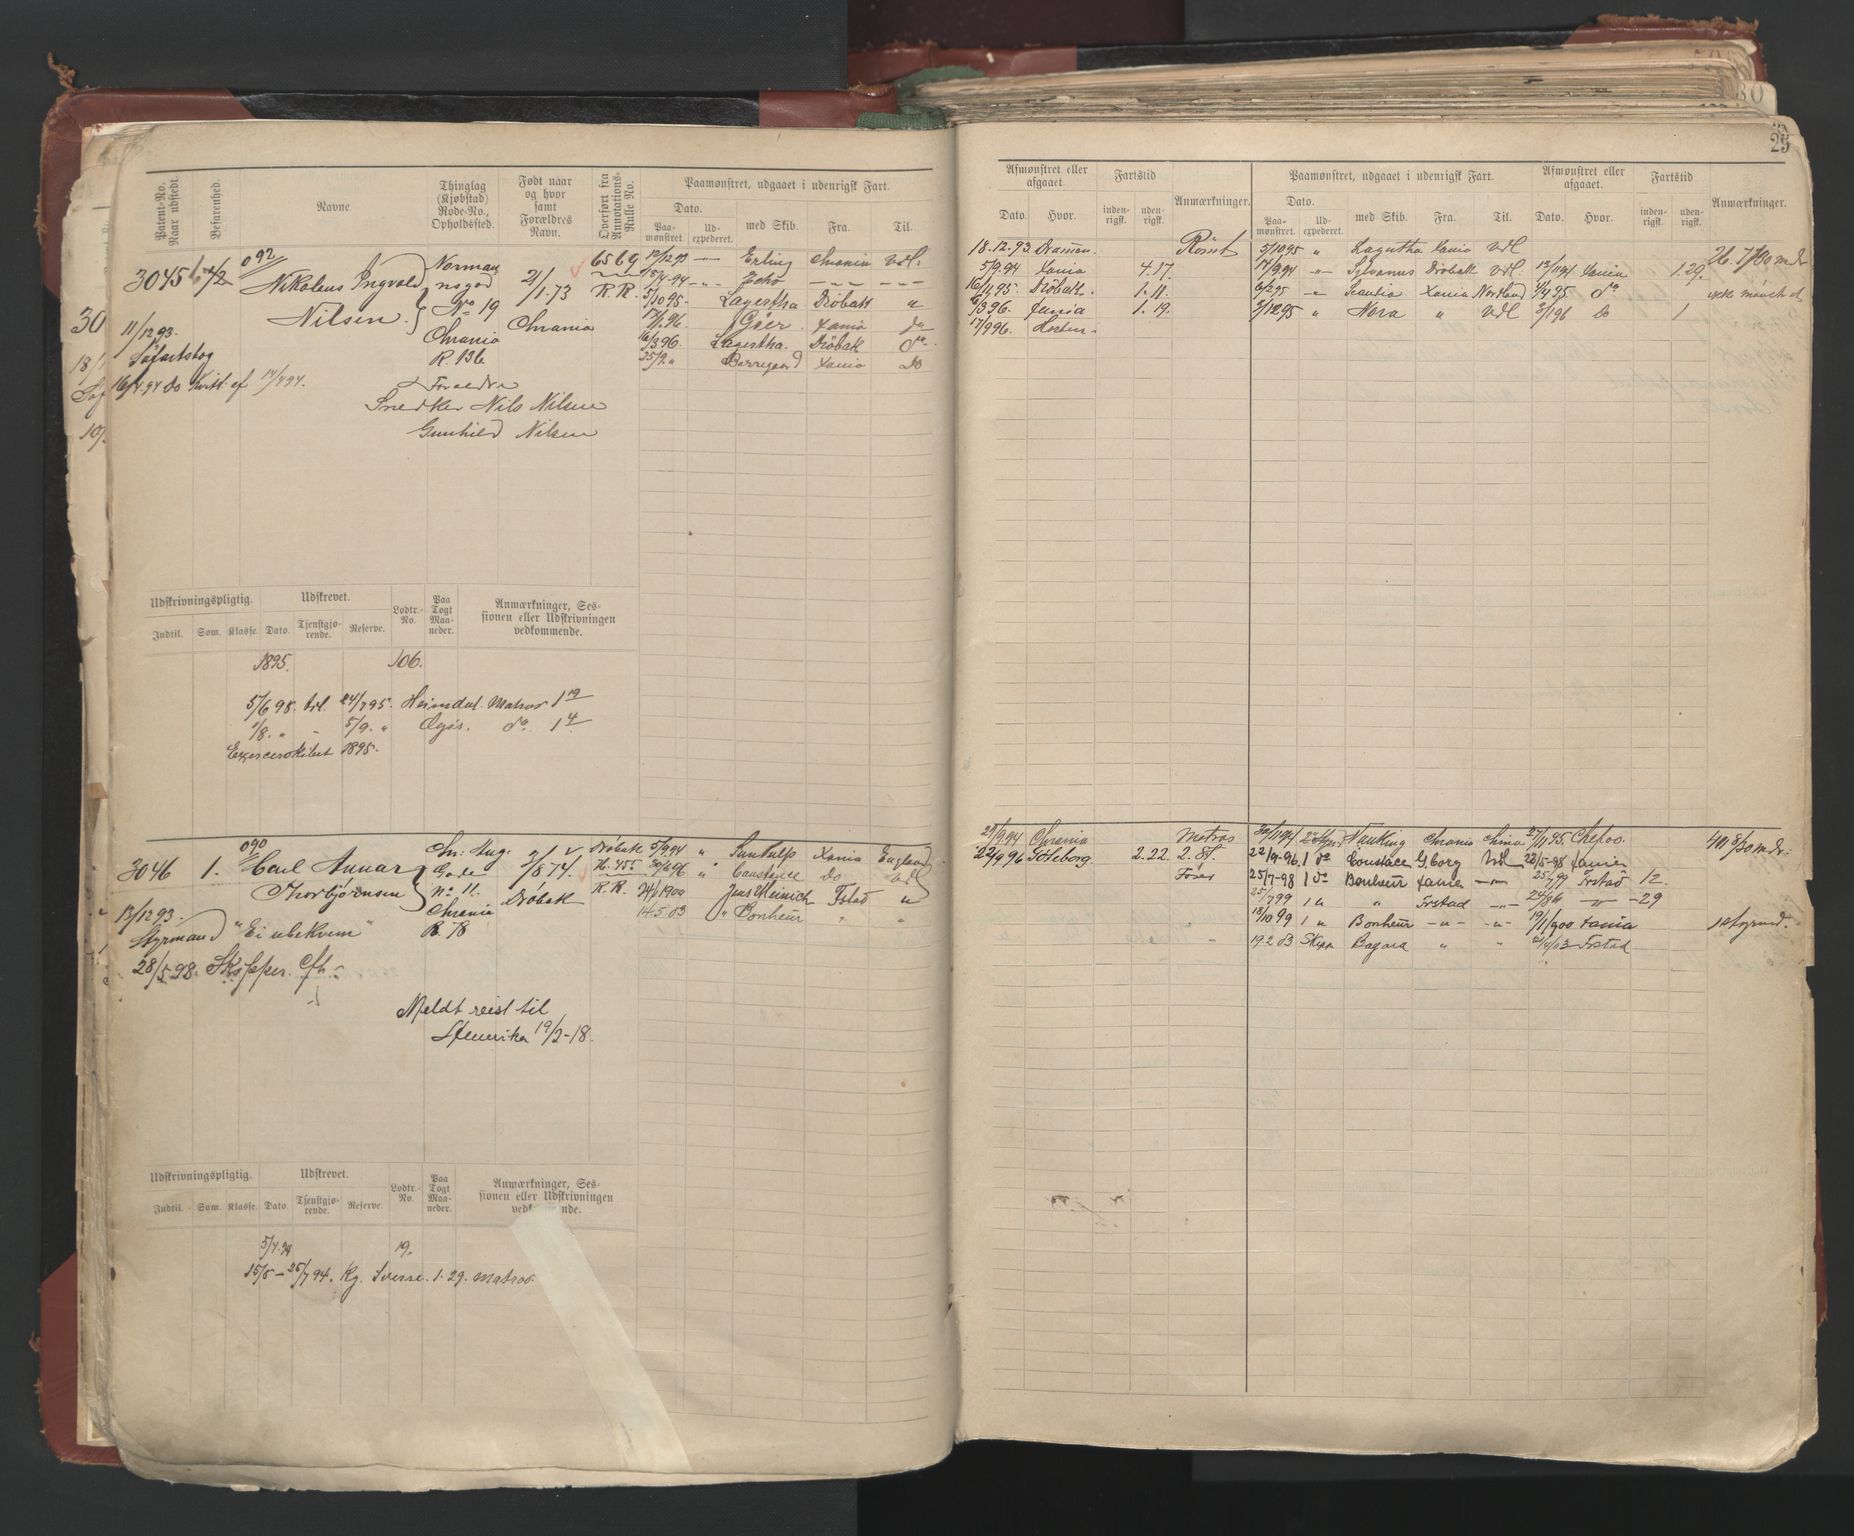 25
Patent-No. Naar udstedt.
Befarenhed.
Navne.
Thinglag (Kjøbstad) Rode-No., Opholdssted.
Født naar og hvor samt Forældres Navn.
Overført fra Annotations-Rulle No.
Paamønstret, udgaaet i udenrigsk Fart.
Dato.
Paamønstret. Udexpederet. med Skib. Fra. Til.
3045 1/2 092
Nikolaus Ingvald
Nilsen.
Norman
nsgad
No 19
Chrania
R. 136
2/1.73
Chrania
6569
R. R.
11/12 93.
Søfartsbog
16/4.94 Do Kvitt. af 14/4 94.
Forældre
Snedker Nils Nilsen
Gunhild Nilsen
12/12 93 — Erling Chrania Udl.
18/4.94 -"- Echo -"- -"-
5/10 95. Lagertha Drøbak "
17/1.96. Gãer. Xania do
16/3 96. Lagertha. Drøbak do
25/9. " Borregaard Xania Do
Udskrivningspligtig.
Udskrevet.
Lodtr.-No.
Paa Togt Maaneder.
Anmærkninger, Sessionen eller Udskrivningen vedkommende.
Indtil. Som. Klasse. Dato. Tjenstgjørende. Reserve.
1895. 106.
5/6 98. til 24/7 95. Heimdal. Matros 1 19
1/8. " - 5/9. " Ægir. do. 1 4
Exercerskibet 1895.
3046 1. 090
Carl Annar
Thorbjørnsen
Chr. Aug.
Gade
No 11.
Chrania
R. 78
2/8 74.
Drøbak
Drøbak
H. 455
R. R.
13/12 93.
Styrmand "Ei ubekvem"
28/5 98. Skipper. Cfh.
Meldt reist til
Amerika 19/2-18.
5/9.94 " Sunkulp Xania England
30/6 96 " Constance Do Udl
24/1 1900 Jens Meinich Frstad "
14.5.03 " Bonheur " "
Udskrivningspligtig.
Udskrevet.
Lodtr.-No.
Paa Togt Maaneder.
Anmærkninger, Sessionen eller Udskrivningen vedkommende.
Indtil. Som. Klasse. Dato. Tjenstgjørende. Reserve.
5/4.94 19.
15/5 — 25/7 94. Kg. Sverre. 1. 29. Matros.
Afmønstret eller afgaaet.
Fartstid
Anmærkninger.
Paamønstret, udgaaet i udenrigsk Fart.
Afmønstret eller afgaaet.
Fartstid
Anmærkninger.
Dato. Hvor. indenrigsk. udenrigsk.
Dato. Paamønstret. Udexpederet. med Skib. Fra. Til. Dato. Hvor. indenrigsk. udenrigsk.
18.12.93. Drammen. Rømt 5/10 95 " Lagertha Xania Udl
5/9.94 Xania 4.17. 17/9 94 — Sylvanus Drøbak Udl. 13/11 94 Xania 1.29.
16/11 95. Drøbak. 1.11. 6/2 95 " Scandia Xania Nortland 1/4 95. do
6/3 96. Xania 1.19. 2/12 95 " Nora " Udl 3/1 96 Do 1
17/9 96. Horten -
26. 7/30 mdr
ikke mønstret
29/9.94 Chrania Matros 30/11 94 2den Styrm. Nanking Chrania China 27/11 95. Chefoo.
22/9 96 Göteborg. 2.22. 2. St. 22/9-96. 1 do Constace G.borg Udl 28/5-98 Xania
25/7-98 1 do Bonheur Xania — 25/7 99 Frstad 12.
25/7 99 1 " " Frstad — -29
13/10 99 1 " Bonheur -"- -"- 19/1 900 Xania
19.2.03 Skipp. Bagara " " 21/4 03 Frstad
40 8/30 mdr.
1 styrmd.